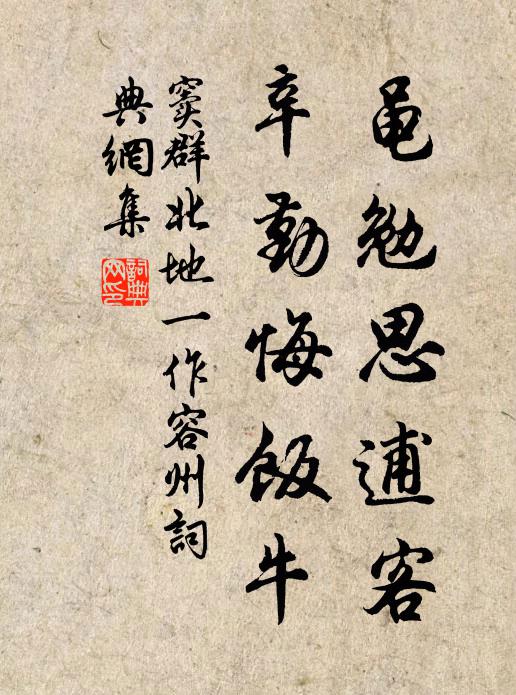 黾勉思逋客
辛勤悔饭牛
窦群北地一作容州詞
典網集
詞典网印